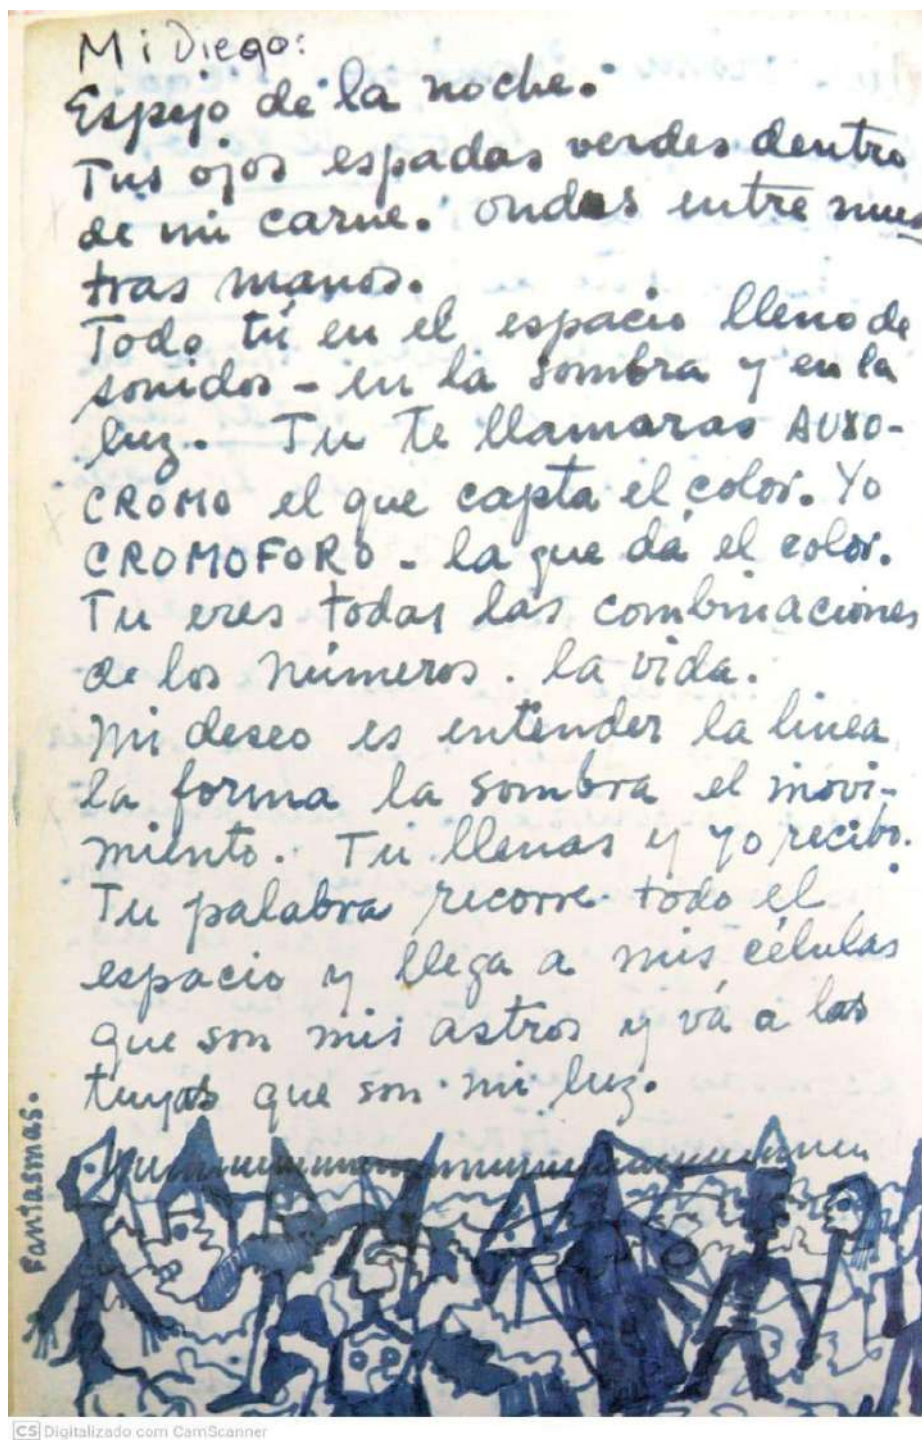 Mi Diego:
Espejo de la noche.
Tus ojos espadas verdes dentro
de mi carne. ondas entre nues
tras manos.
Todo tú en el espacio lleno de
sonidos - en la sombra y en la
luz. Tu te llamaras AUXO-
CROMO el que capta el color. Yo
CROMOFORO - la que dá el color.
Tu eres todas las combinaciones
de los números. la vida.
Mi deseo es entender la linea
la forma la sombra el movi-
miento. Tu llenas y yo recibo.
Tu palabra recorre todo el
espacio y llega a mis células
que son mis astros y vá a las
tuyas que son mi luz.
Fantasmas.
CS Digitalizado com CamScanner